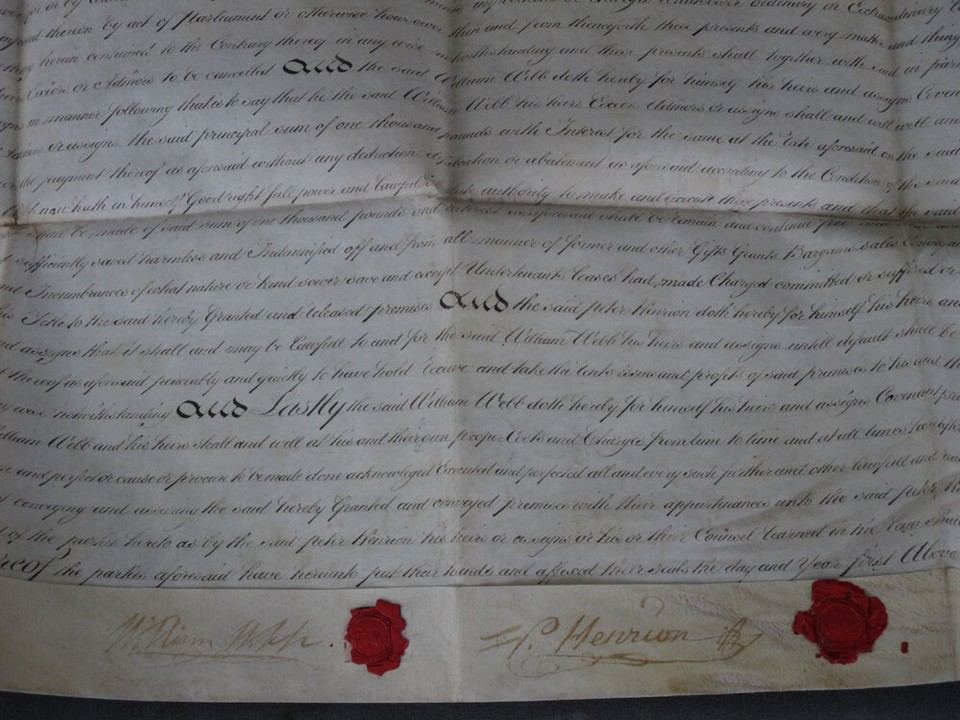 by act of Parliament or otherwise howsoever
thereon
herein contained to the Contrary thereof in any wise notwithstanding and these presents shall together with said
Execors or Admors to be cancelled And the said William Webb doth hereby for himself his heirs and assigns
in manner following that is to say that he the said William Webb his heirs Execors Admors or assigns shall and will well and
or assigns the said principal sum of one thousand pounds with Interest for the same at the rate aforesaid on the said
the payment thereof as aforesaid without any deduction or abatement as aforesaid according to the Condition of the said
now hath in himself Good right full power and lawful authority to make and execute these presents and that the said
made of said sum of one thousand pounds and interest as aforesaid shall be remain and continue
sufficiently saved harmless and Indemnified off and from all manner of former and other Gifts Grants Bargains sales
Incumbrances of what nature or kind soever save and except Undertenants leases had made Charged committed or suffered
to the said hereby Granted and released premises And the said Peter Henrion doth hereby for himself his heirs and
assigns that it shall and may be lawfull to and for the said William Webb his heirs and assigns untill default shall be
thereof as aforesaid peaceably and quietly to have hold and take the rents issues and profits of said premises to his and
wise notwithstanding And Lastly the said William Webb doth hereby for himself his heirs and assigns Covenant
William Webb and his heirs shall and will at his and their own proper Costs and Charges from time to time and at all times hereafter
and perfect or cause or procure to be made done acknowleged Executed and perfected all and every such further and other lawfull and
conveying and assuring the said hereby Granted and conveyed premises with their appurtinances unto the said Peter
of the parties hereto as by the said Peter Henrion his heirs or assigns or his or their Counsel learned in the Laws shall
the parties aforesaid have hereunto put their hands and affixed their seals the day and Year first Above
William Webb P. Henrion